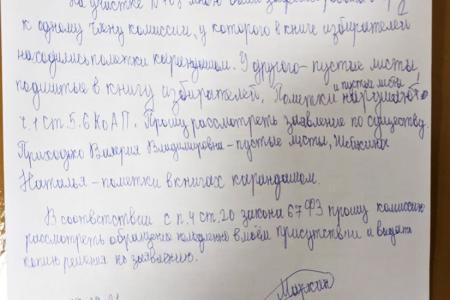 На участке №
к одному члену комиссии, у которого в книге избирателей
находились пометки карандашом. У другого - пустые листы
подшитые в книгу избирателей. Пометки и пустые листы нарушают
ч.1 ст. 5.6 КоАП. Прошу рассмотреть заявление по существу.
Приходько Валерия Владимировна - пустые листы,
Наталья - пометки в книгах карандашом.
В соответствии с п.4 ст.20 закона 67 ФЗ прошу комиссию
рассмотреть обращение немедленно в моём присутствии и выдать
копию решения по заявлению.